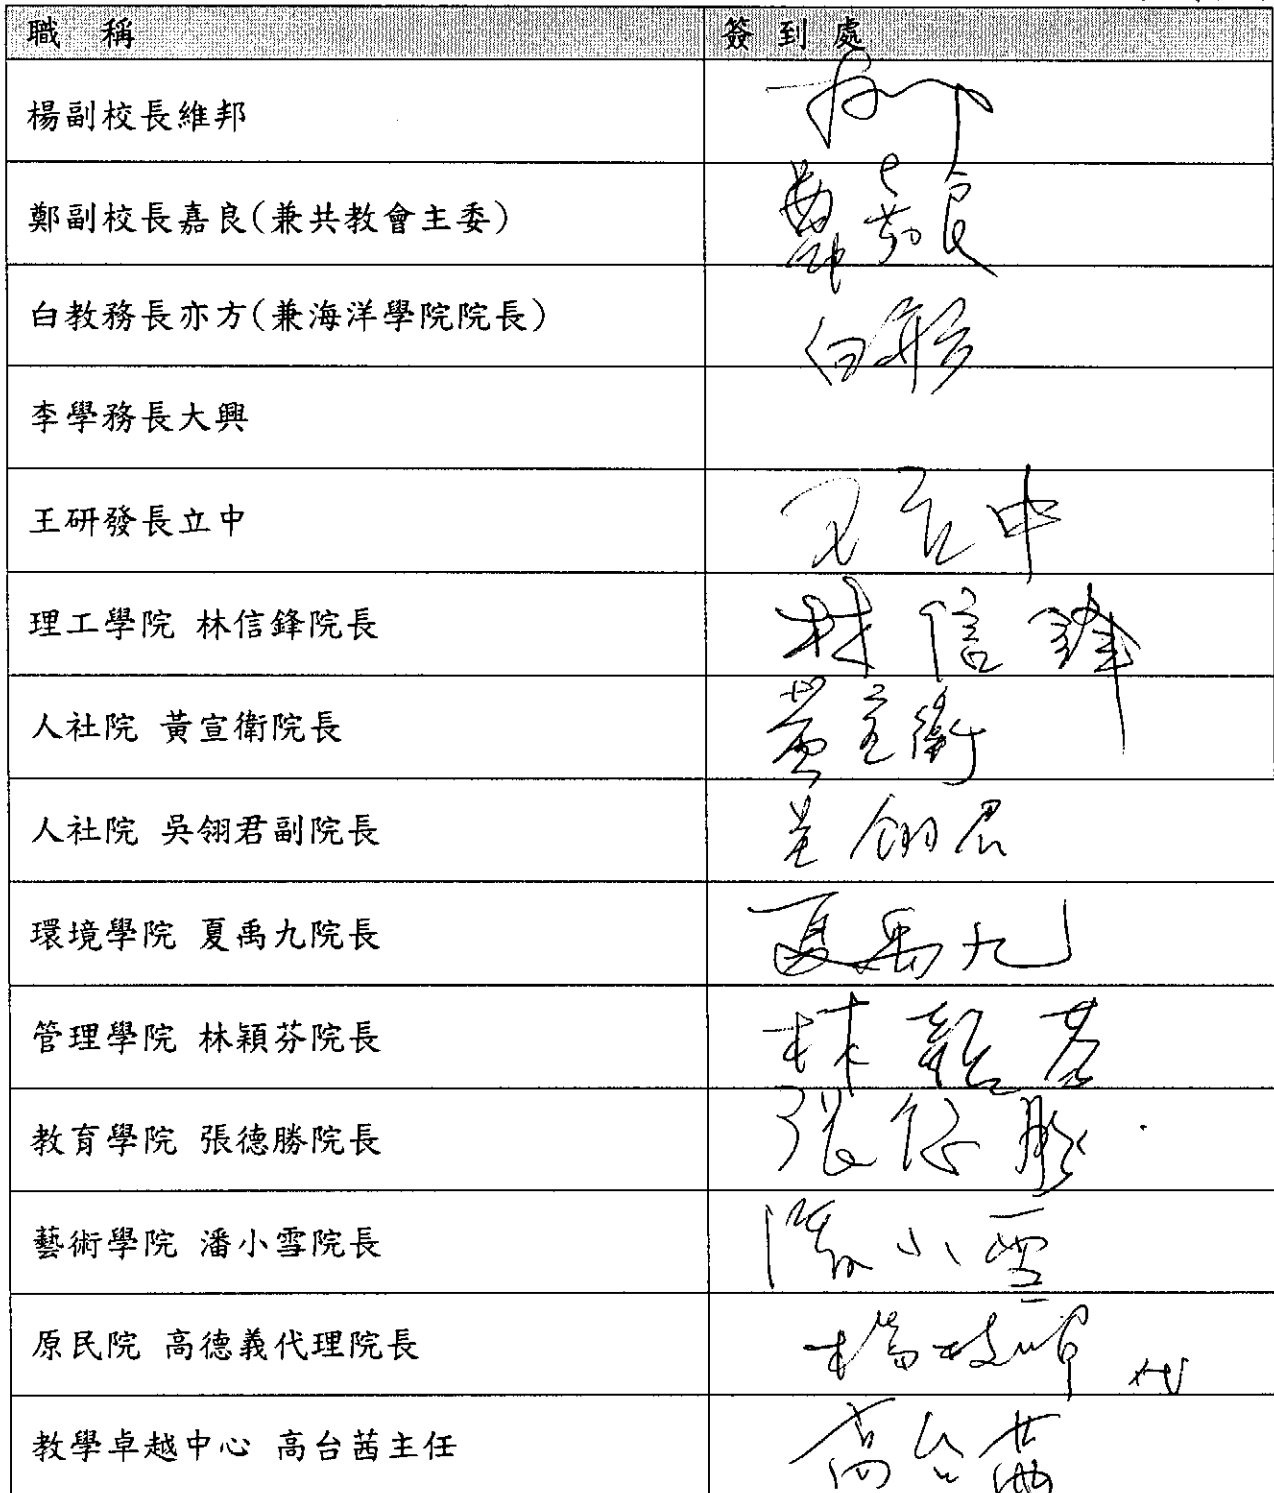 職 稱 簽 到 處
楊副校長維邦
鄭副校長嘉良(兼共教會主委) 鄭嘉良
白教務長亦方(兼海洋學院院長) 白亦方
李學務長大興
王研發長立中 王立中
理工學院 林信鋒院長 林信鋒
人社院 黃宣衛院長 黃宣衛
人社院 吳翎君副院長 吳翎君
環境學院 夏禹九院長 夏禹九
管理學院 林穎芬院長 林穎芬
教育學院 張德勝院長 張德勝
藝術學院 潘小雪院長 潘小雪
原民院 高德義代理院長 代
教學卓越中心 高台茜主任 高台茜